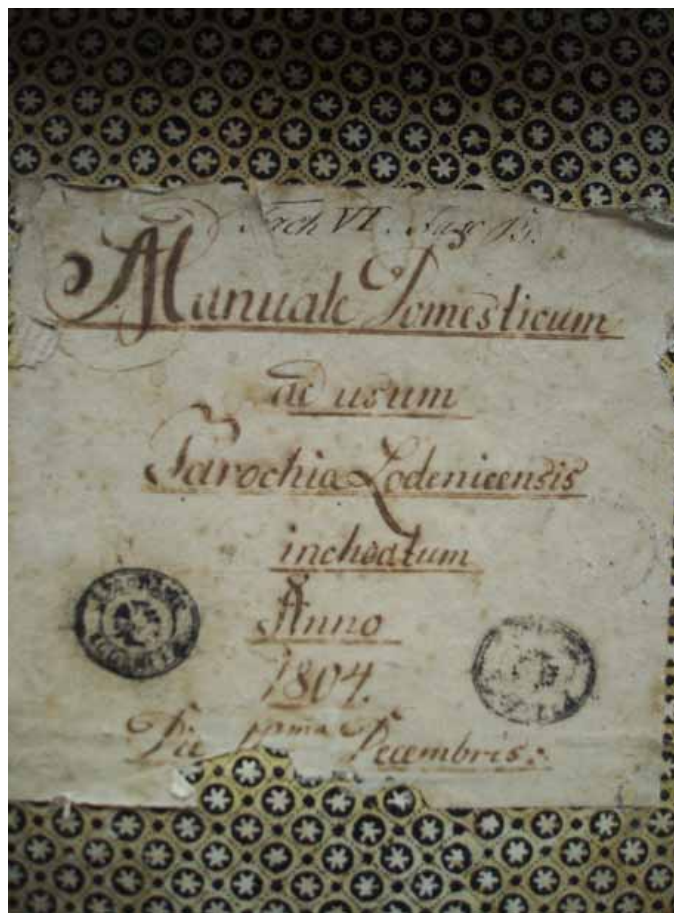 Fach VI. Fasc 15.
Manuale Domesticum
ad usum
Parochiæ Lodenicensis
inchoatum
Anno
1804.
Die prima Decembris.